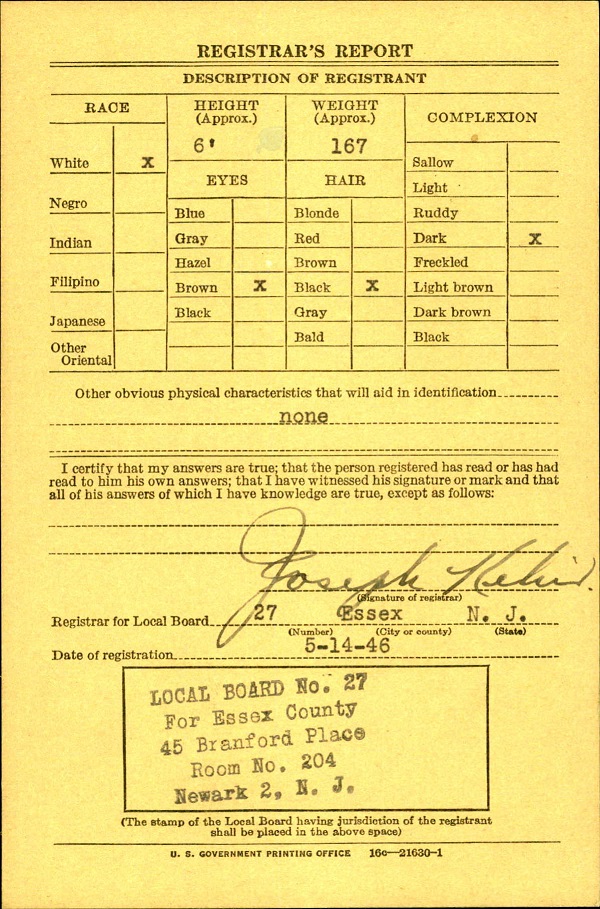 REGISTRAR'S REPORT
DESCRIPTION OF REGISTRANT
RACE
White X
Negro
Indian
Filipino
Japanese
Other
Oriental
HEIGHT
(Approx.)
6'
WEIGHT
(Approx.)
167
EYES
Blue
Gray
Hazel
Brown X
Black
HAIR
Blonde
Red
Brown
Black X
Gray
Bald
COMPLEXION
Sallow
Light
Ruddy
Dark X
Freckled
Light brown
Dark brown
Black
Other obvious physical characteristics that will aid in identification
none
I certify that my answers are true; that the person registered has read or has had
read to him his own answers; that I have witnessed his signature or mark and that
all of his answers of which I have knowledge are true, except as follows:
Joseph
(Signature of registrar)
Registrar for Local Board 27 Essex N. J.
(Number) (City or county) (State)
Date of registration 5-14-46
LOCAL BOARD No. 27
For Essex County
45 Branford Place
Room No. 204
Newark 2, N. J.
(The stamp of the Local Board having jurisdiction of the registrant
shall be placed in the above space)
U. S. GOVERNMENT PRINTING OFFICE 16c—21630-1